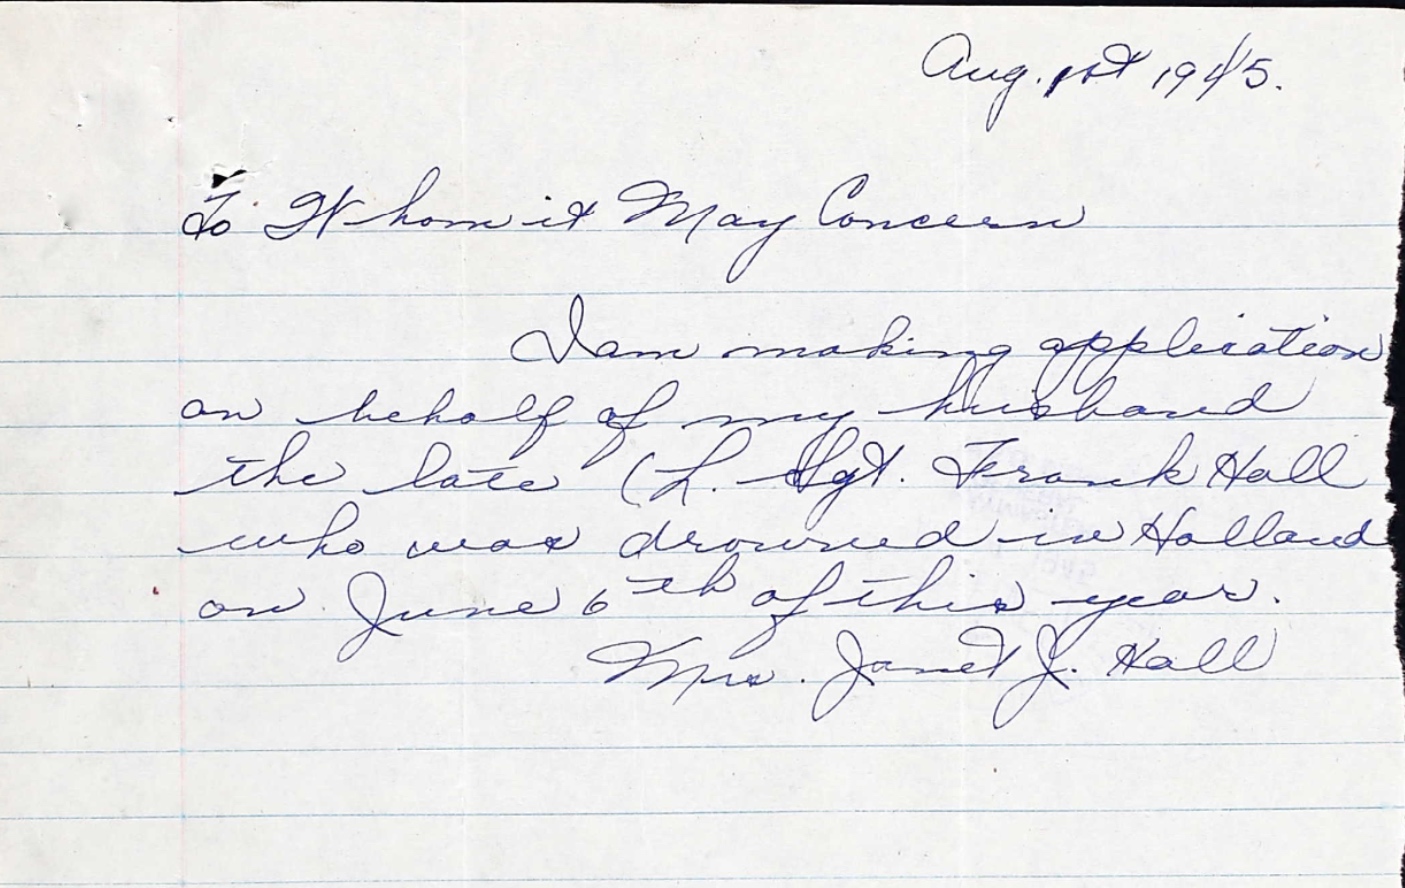 Aug. 1st 1945.
To Whom it May Concern
I am making application
on behalf of my husband
the late (L. Sgt. Frank Hall
who was drowned in Holland
on June 6th of this year.
Mrs. Janet J. Hall